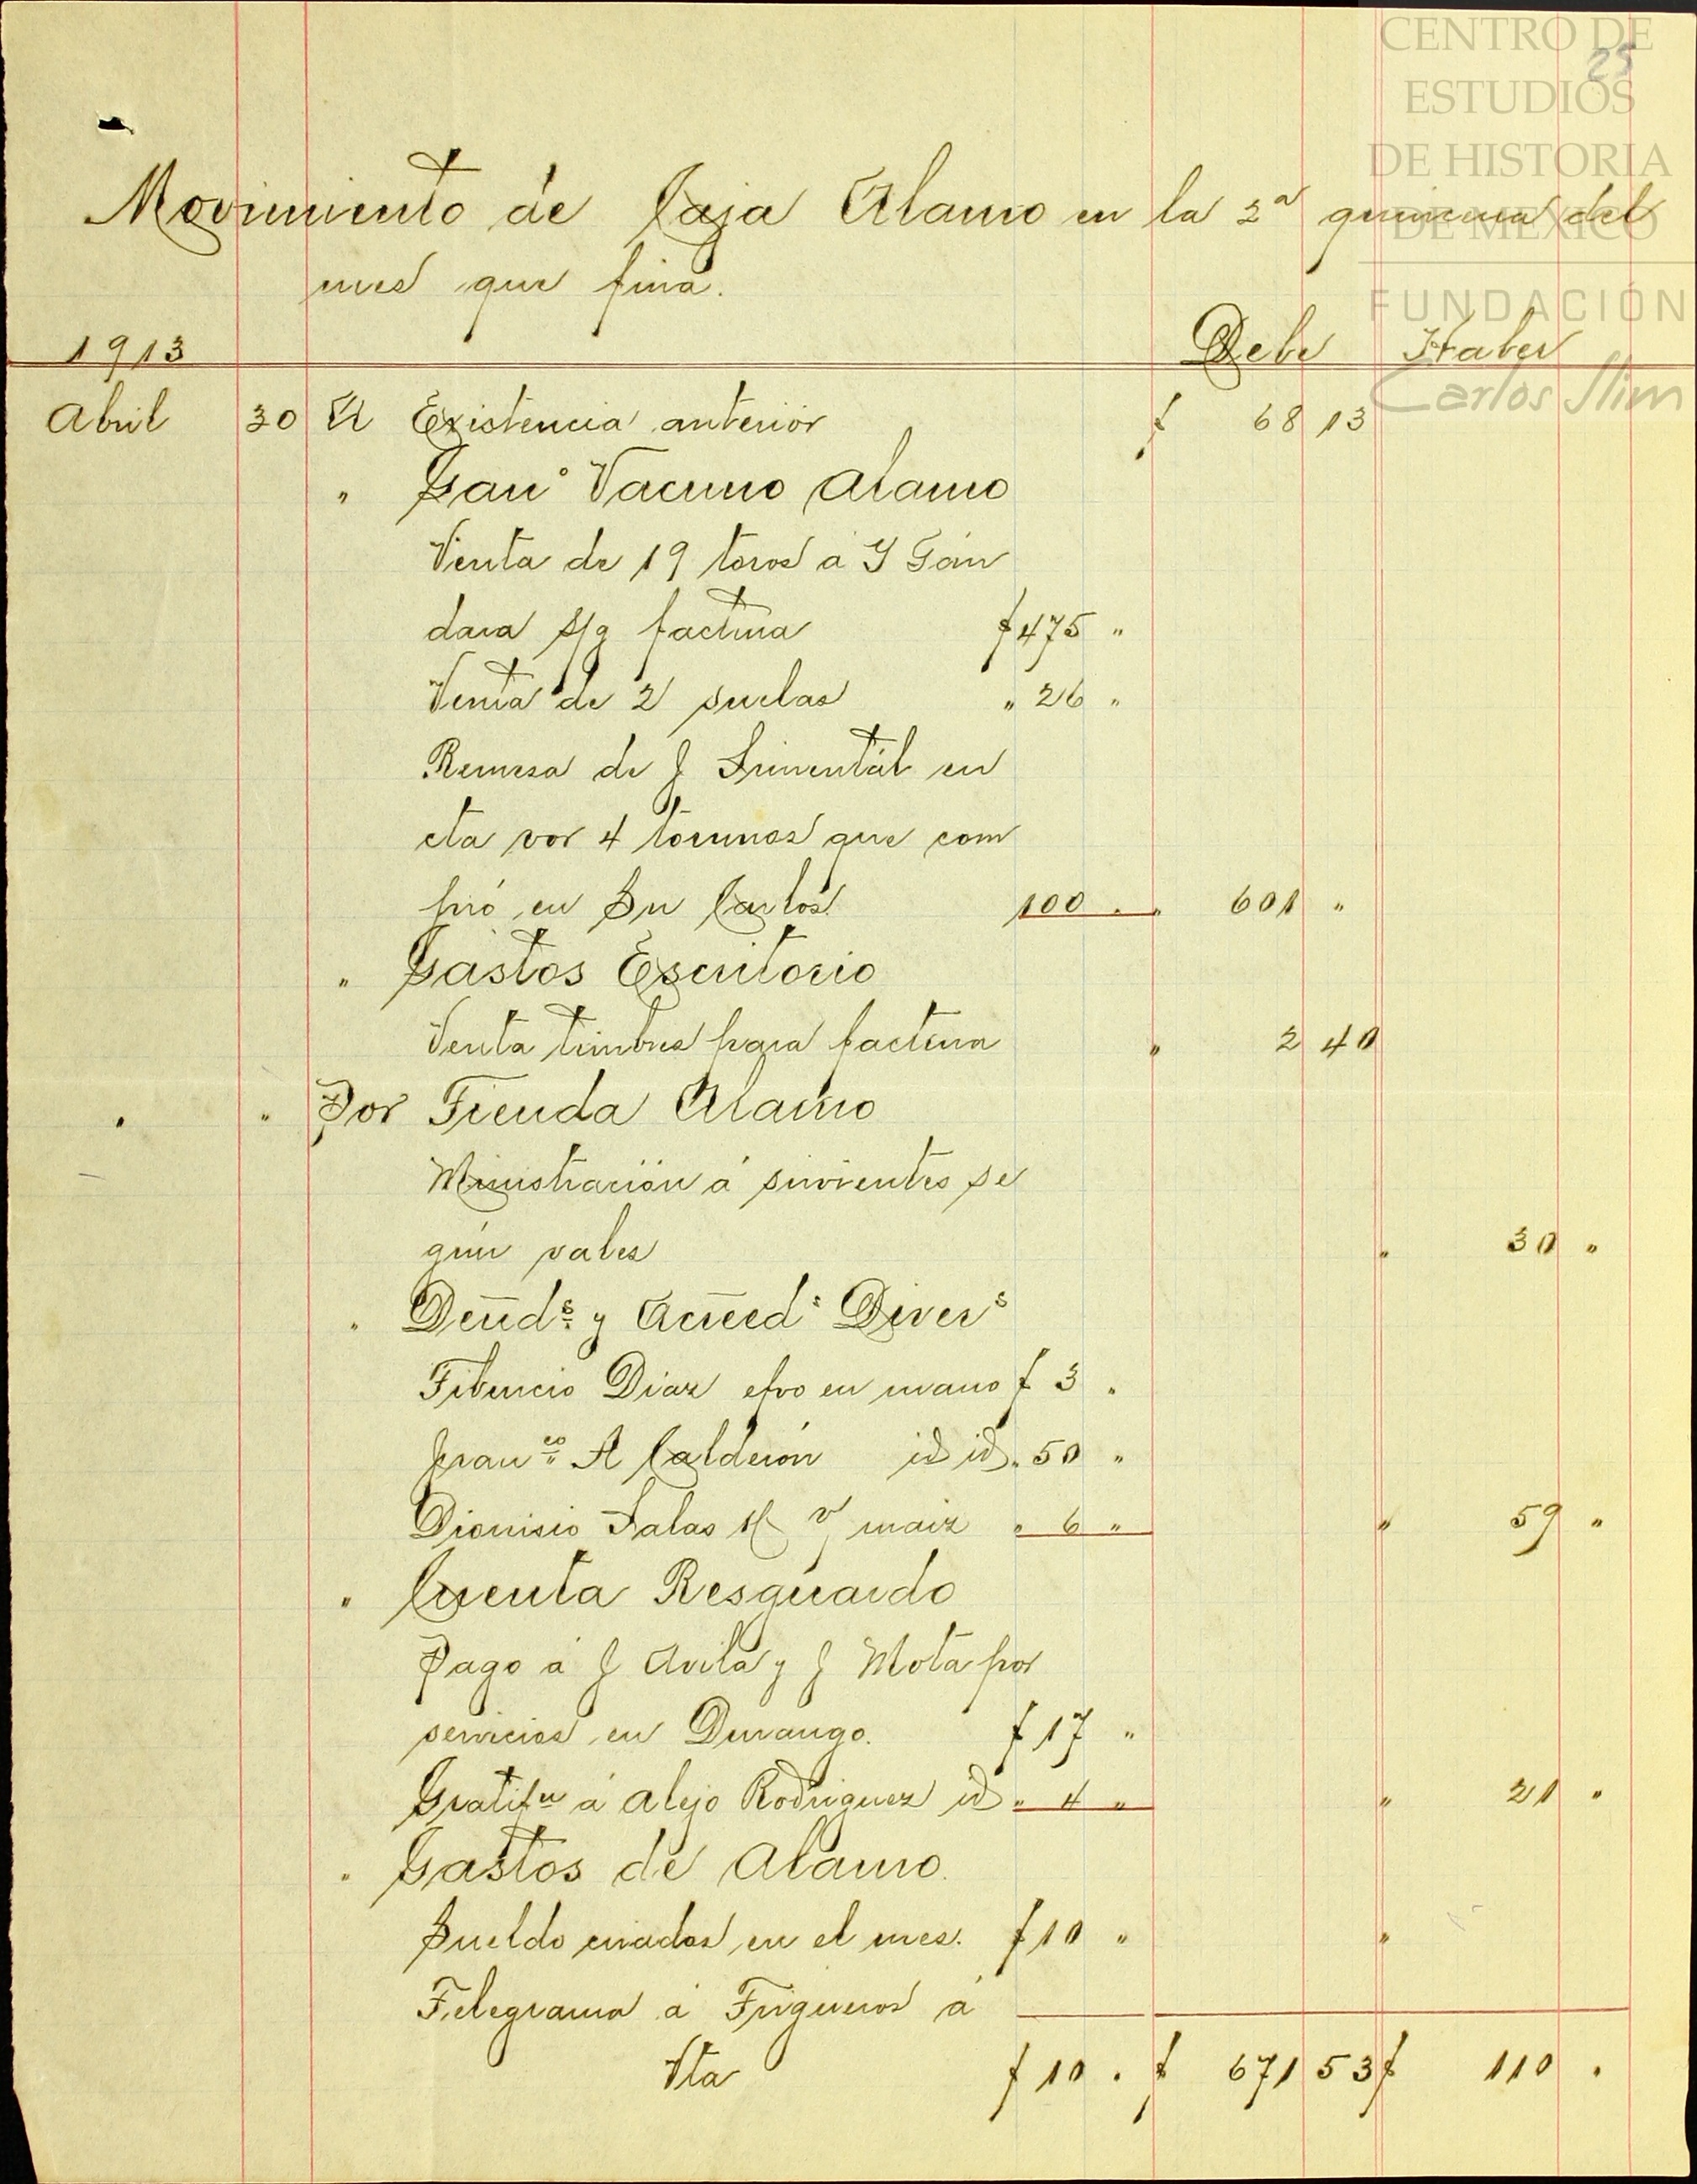 CENTRO DE
25
ESTUDIOS
DE HISTORIA
DE MEXICO
FUNDACIÓN
Carlos Slim
Movimiento de Caja Alamo en la 2ª quincena del
mes que fina.
1913 Debe Haber
Abril 30 A Existencia anterior $ 68 13
" Ganº Vacuno Alamo
Venta de 19 toros á Y Gán
dara s/g factura $ 475 "
Venta de 2 suelas " 26 "
Remesa de J Simentál en
cta por 4 torunos que com
pró en Sn Carlos 100 " " 601 "
" Gastos Escritorio
Venta timbres para factura " 2 40
" " Por Tienda Alamo
Ministración á sirvientes se
gún vales " 30 "
" Deudˢ y Acreedˢ Diverˢ
Fiburcio Diaz efvo en mano $ 3 "
Franᶜᵒ A Calderón id id " 50 "
Dionisio Salas maiz " 6 " " 59 "
" Cuenta Resguardo
Pago á J Avila y J Mota por
servicios en Durango. $ 17 "
Gratifⁿ á Alejo Rodriguez id " 4 " " 21 "
" Gastos de Alamo.
Sueldo criados en el mes. $ 10 " "
Telegrama á Trigueros á
Vta $ 10 " $ 671 53 $ 110 "